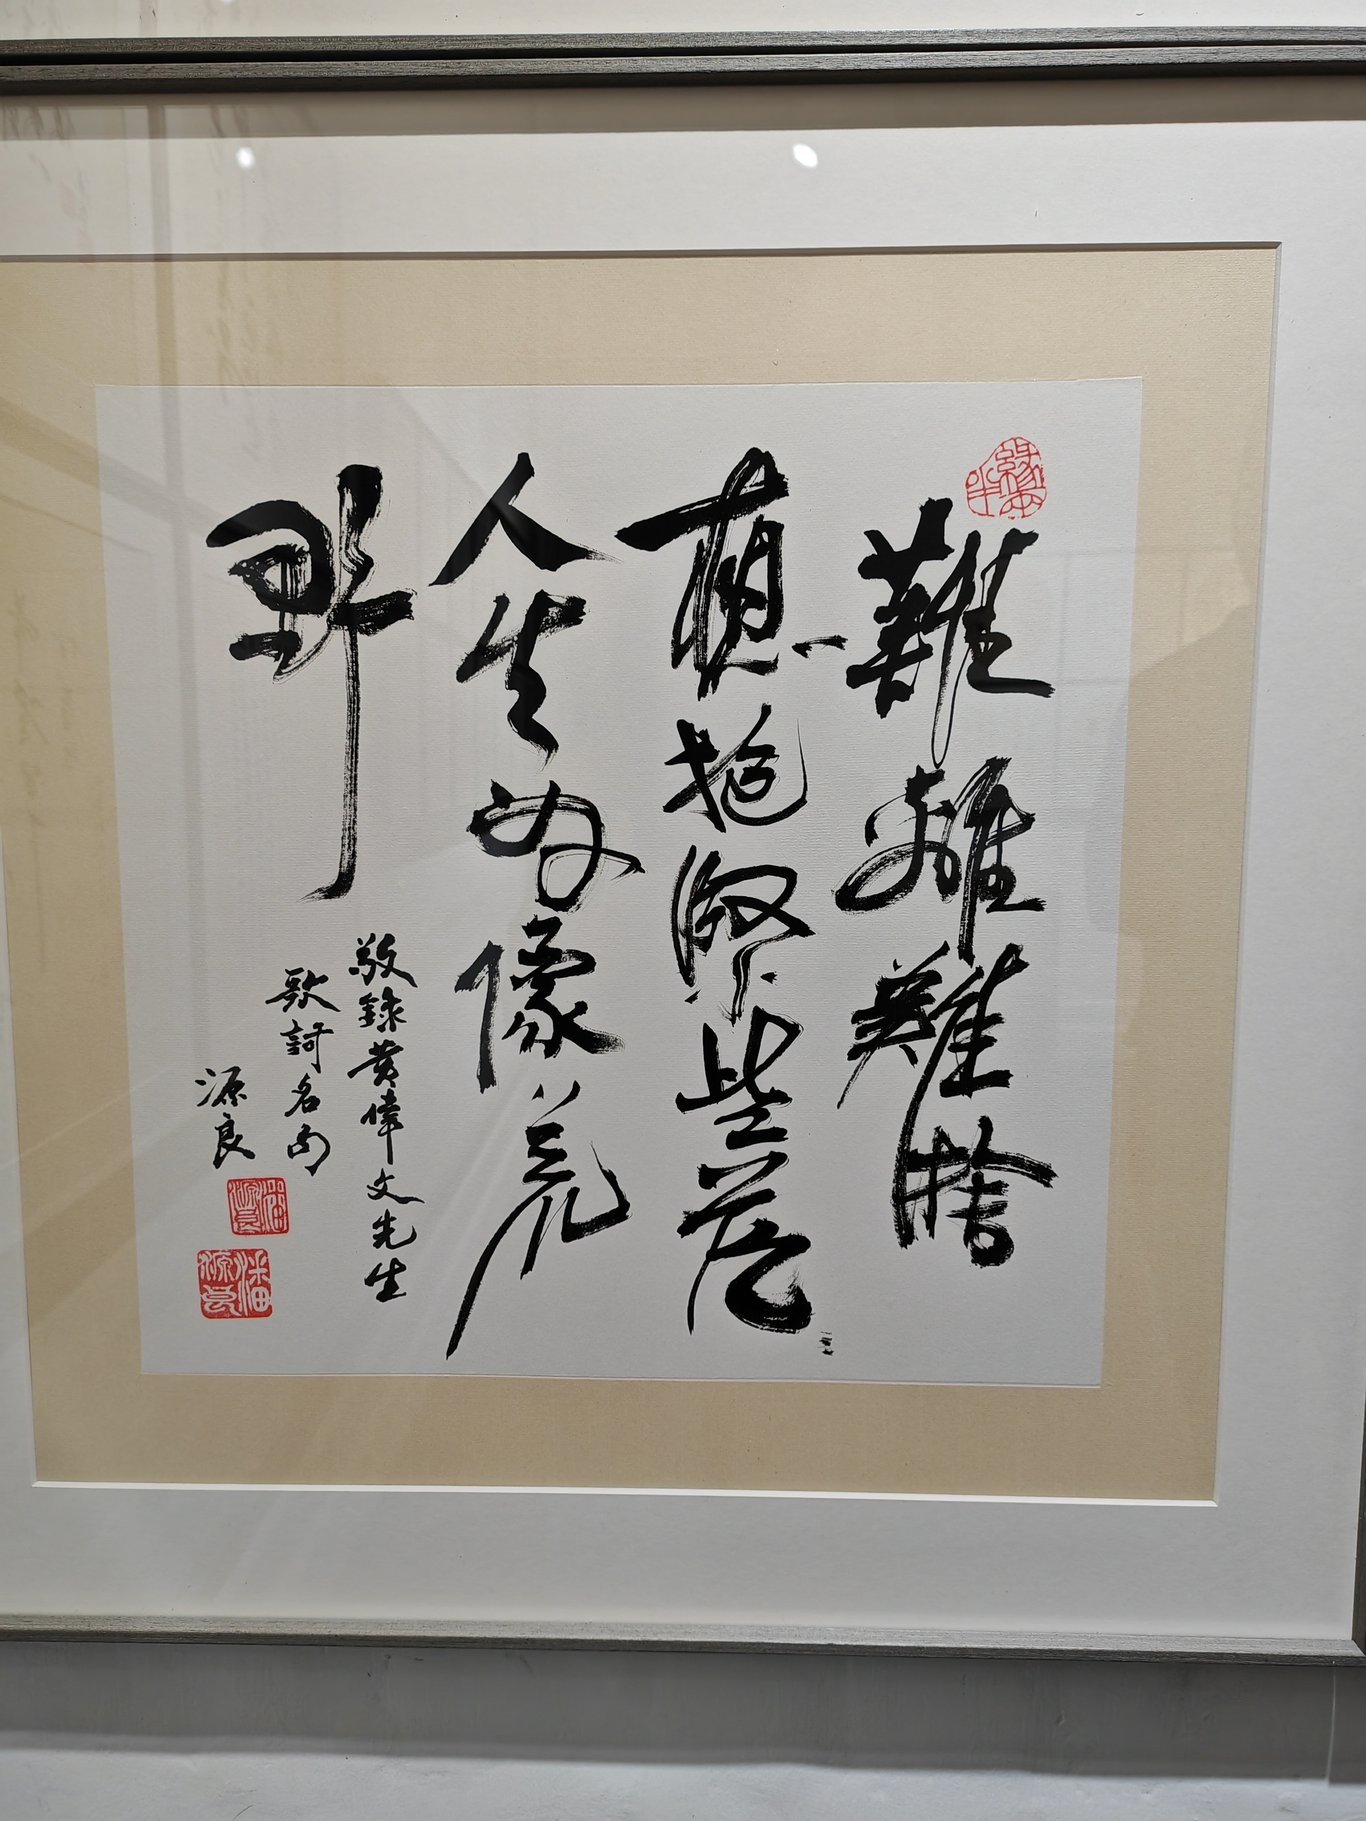 難離難捨
想抱緊些茫々
人生好像荒
野
敬錄黃偉文先生
歌詞名句
源良
潘源良